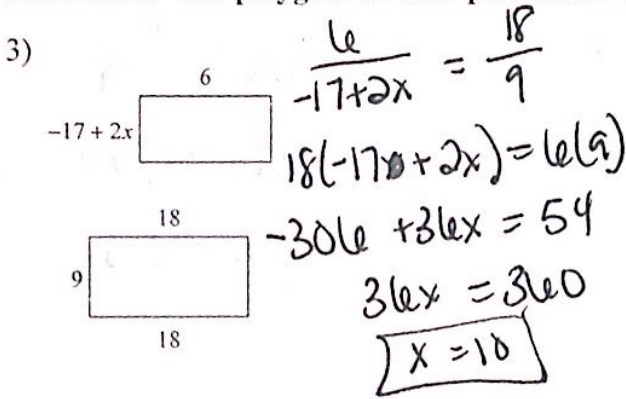 3)
6
-17 + 2x
18
9
18
6/(-17+2x) = 18/9
18(-17+2x)=6(9)
-306 +36x = 54
36x = 360
x = 10